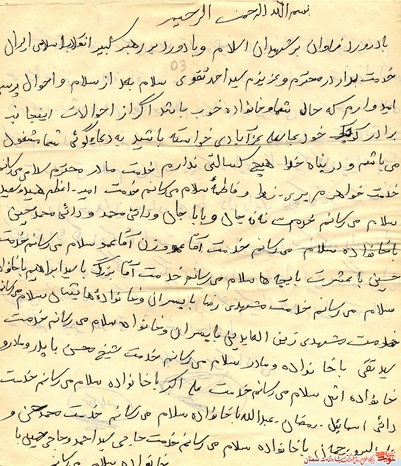 بسم الله الرحمن الرحیم
با درود فراوان بر شهیدان اسلام و با درود بر رهبر کبیر انقلاب اسلامی ایران
خدمت برادر محترم و عزیزم سید احمد تقوی سلام بعد از سلام و احوال پرسی
امیدوارم که حال شما و خانواده خوب باشد اگر از احوالات اینجانب
برادر خود خواسته باشید به دعاگوئی شما مشغول
می باشم و در پناه خدا هیچ کسالتی ندارم خدمت مادر محترم سلام می رسانم
خدمت خواهرم و فاطمه سلام می رسانم خدمت
سلام می رسانم خدمت ننه جان و بابا جان و دائی محمد و دائی محمد حسین
با خانواده سلام می رسانم خدمت آقا عمو و زن آقا عمو سلام می رسانم خدمت
حسین با بچه ها سلام می رسانم خدمت آقا بزرگ با سید ابراهیم با خانواده
سلام می رسانم خدمت مشهدی رضا با پسران و خانواده هایشان سلام می رسانم
خدمت مشهدی زین العابدین با پسران و خانواده سلام می رسانم خدمت
سید تقی با خانواده و مادر سلام می رسانم خدمت شیخ محسن با پدر و مادر و
خانواده اش سلام می رسانم خدمت علی اکبر با خانواده سلام می رسانم خدمت
دائی رمضان عبدالله با خانواده سلام می رسانم خدمت محمد حسن و
با خانواده سلام می رسانم خدمت حاجی سید احمد و حاجی حسین با
خانواده سلام می رسانم